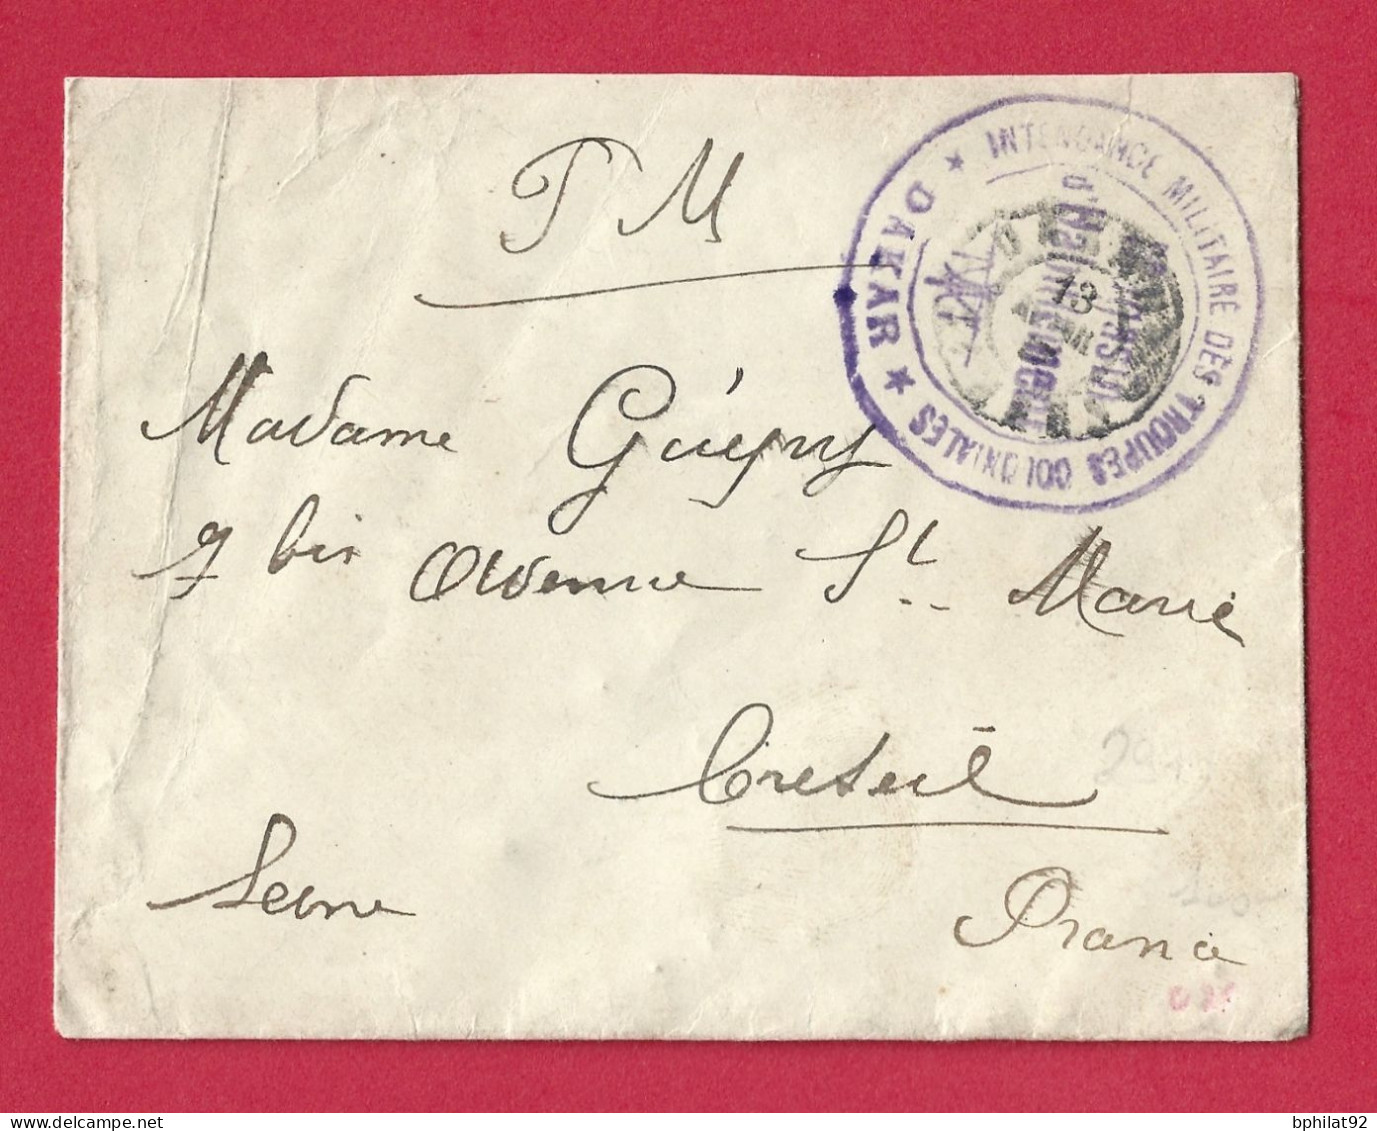 F M
INTENDANCE MILITAIRE DES TROUPES COLONIALES
★ DAKAR ★
13
Madame Guégny
7 bis Avenue Ste Marie
Creteil
Seine
France
bphilat92